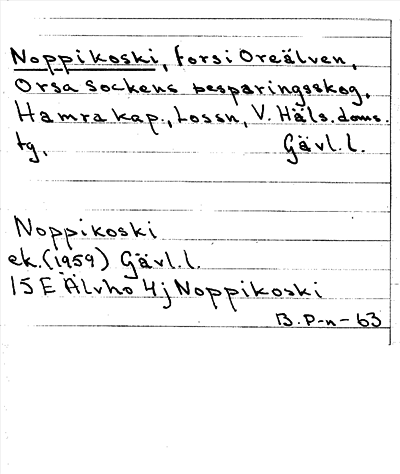 Noppikoski, fors i Oreälven,
Orsa Sockens besparingsskog,
Hamra kap., Lossn, V. Häls. doms.
tg, Gävl. l.
Noppikoski
ek. (1959) Gävl. l.
15 E Älvho 4j Noppikoski
B. P-n-63